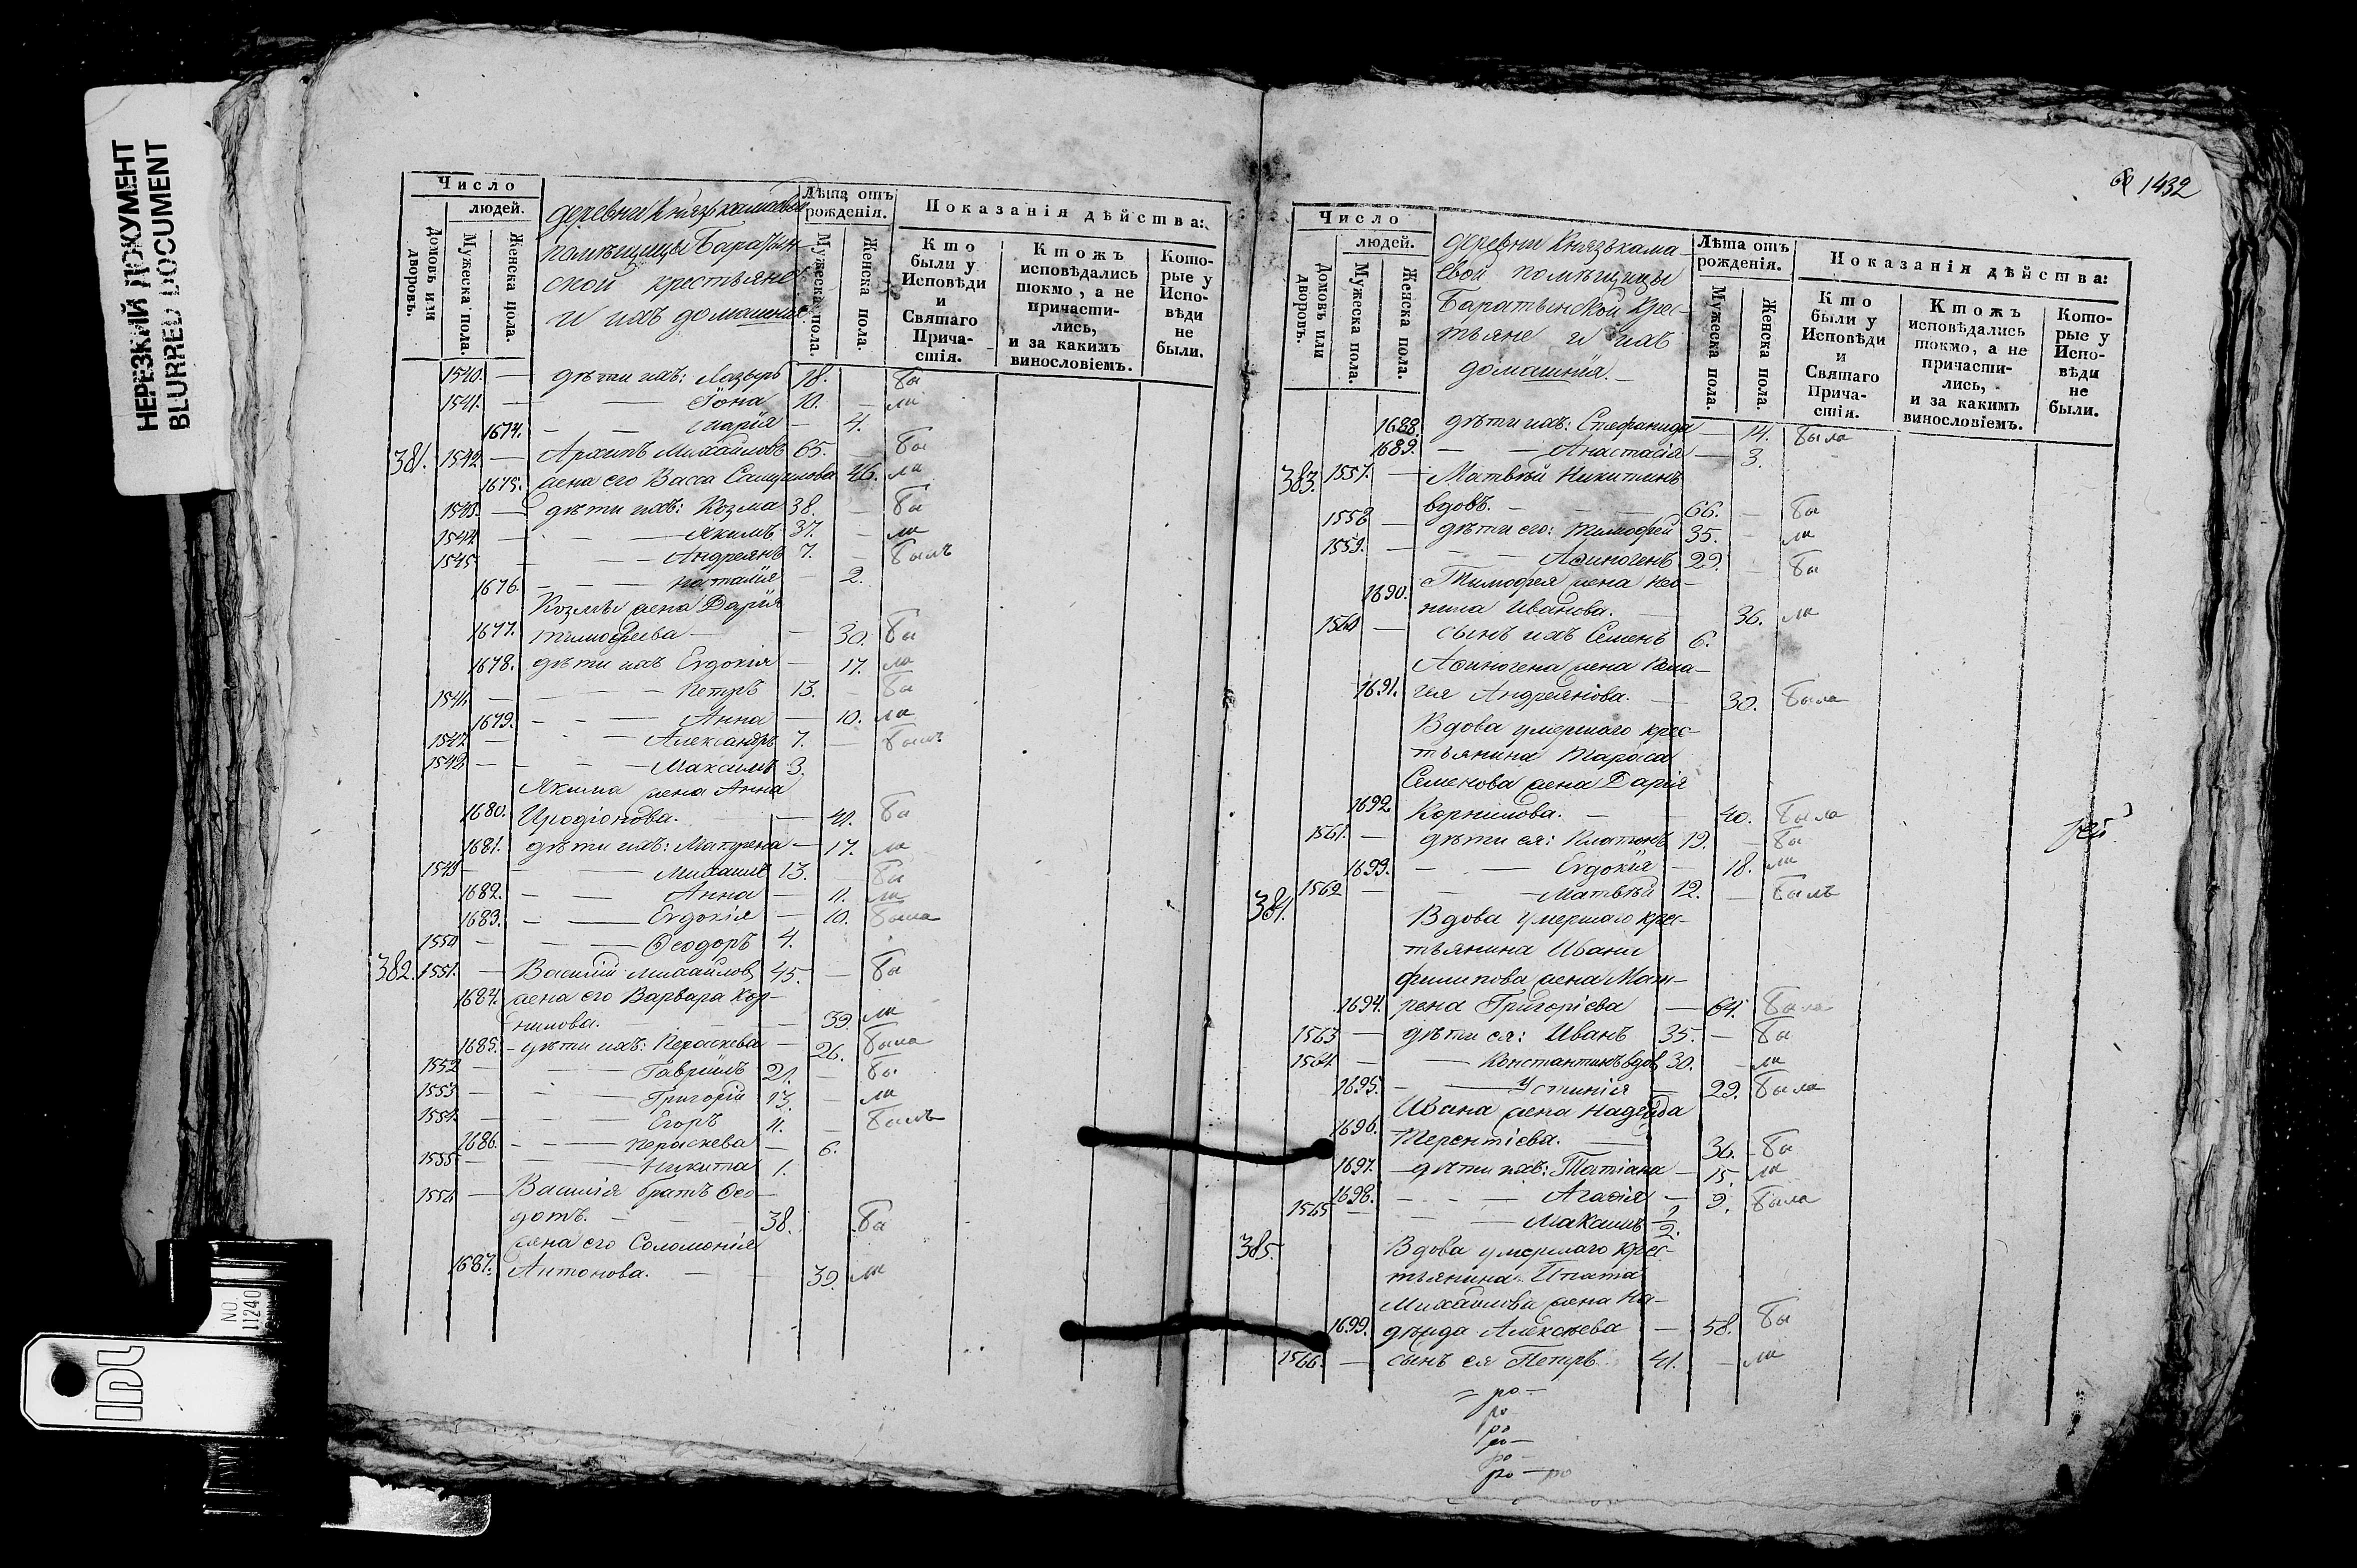 НЕРЕЗКИЙ ДОКУМЕНТ
BLURRED DOCUMENT
Число
людей.
Домовъ или дворовъ.
Мужеска пола.
Женска пола.
деревни Князькамаевой
помѣщицы Баратын-
ской крестьяне
и ихъ домашнія
Лѣта отъ рожденія.
Мужеска пола.
Женска пола.
Показанія дѣйства:
Кто были у Исповѣди и Святаго Причастія.
Ктожъ исповѣдались токмо, а не причастились, и за какимъ винословіемъ.
Которые у Исповѣди не были.
1540. — дѣти ихъ: Лазырь 18. бы
1541. — Іона 10. ли
1674. — Марія — 4.
381. 1542 — Архипъ Михайловъ 65. — бы
1675. жена его Васса Самуилова 46. ли
1543. — дѣти ихъ: Козма 38. — бы
1544. — Якимъ 37. — ли
1545. — Андреянъ 7. — былъ
1676. — Наталія — 2.
Козмы жена Дарія
1677. Тимофеева — 30. бы
1678. дѣти ихъ Евдокія — 17. ла
1546. — Петръ 13. — бы
1679. — Анна — 10. ли
1547. — Александръ 7. — былъ
1548. — Максимъ 3.
Якима жена Анна
1680. Иродіонова. — 41. бы
1681. дѣти ихъ: Матрена — 17. ли
1549 — Михаилъ 13. — бы
1682. — Анна — 11. ли
1683. — Евдокія — 10. была
1550 — Ѳеодоръ 4.
382. 1551. — Василій Михайловъ 45. — бы
1684. жена его Варвара Кор-
нилова. — 39. ли
1685. — дѣти ихъ: Параскева — 26. была
1552 — Гавріилъ 21. — бы
1553 — Григорій 13. — ли
1554. — Егоръ 11. — былъ
1686. — Параскева — 6.
1555 — Никита 1.
1556 — Василія братъ Ѳео-
дотъ. — 38. бы
жена его Соломонія
1687. Антонова. — 39. ли
NO. 11240
IDC
1432
Число
людей.
Домовъ или дворовъ.
Мужеска пола.
Женска пола.
деревни Князькама
евой помѣщицы
Баратынской крес-
тьяне и ихъ
домашнія. —
Лѣта отъ рожденія.
Мужеска пола.
Женска пола.
Показанія дѣйства:
Кто были у Исповѣди и Святаго Причастія.
Ктожъ исповѣдались токмо, а не причастились, и за какимъ винословіемъ.
Которые у Исповѣди не были.
1688. дѣти ихъ: Стефанида — 14. была
1689. — Анастасія — 3.
383. 1557. — Матвѣй Никитинъ
вдовъ. — 66. — бы
1558 — дѣти его: Тимофей 35. — ли
1559. — Аѳиногенъ 29. бы
Тимофея жена Не-
1690. нила Иванова. — 36. ли
1560 — сынъ ихъ Семенъ 6.
Аѳиногена жена Пела-
1691. гея Андреянова. — 30. была
Вдова умершаго крес-
тьянина Тараса
Семенова жена Дарія
1692 Корнилова. — 40. была
1561. — дѣти ея: Платонъ 19. — бы
1693. — Евдокія — 18. ли
1562 — Матвѣй 12. — былъ
384. Вдова умершаго крес-
тьянина Ивана
Филипова жена Мат-
1694. рена Григоріева — 64. была
1563 — дѣти ея: Иванъ 35. — бы
1564 — Константинъ вдов 30. — ли
1695. — Устинія — 29. была
Ивана жена Надежда
1696. Терентіева. — 36. бы
1697. — дѣти ихъ: Татіана — 15. ли
1698. — Агафія — 9. была
1565 — Максимъ 1/2.
385. Вдова умершаго крес-
тьянина Ипата
Михайлова жена На-
1699. дежда Алексѣева — 58. бы
1566. — сынъ ея Петръ 41. — ли
= ро —
ро
ро
ро —
ро —
ро — ро